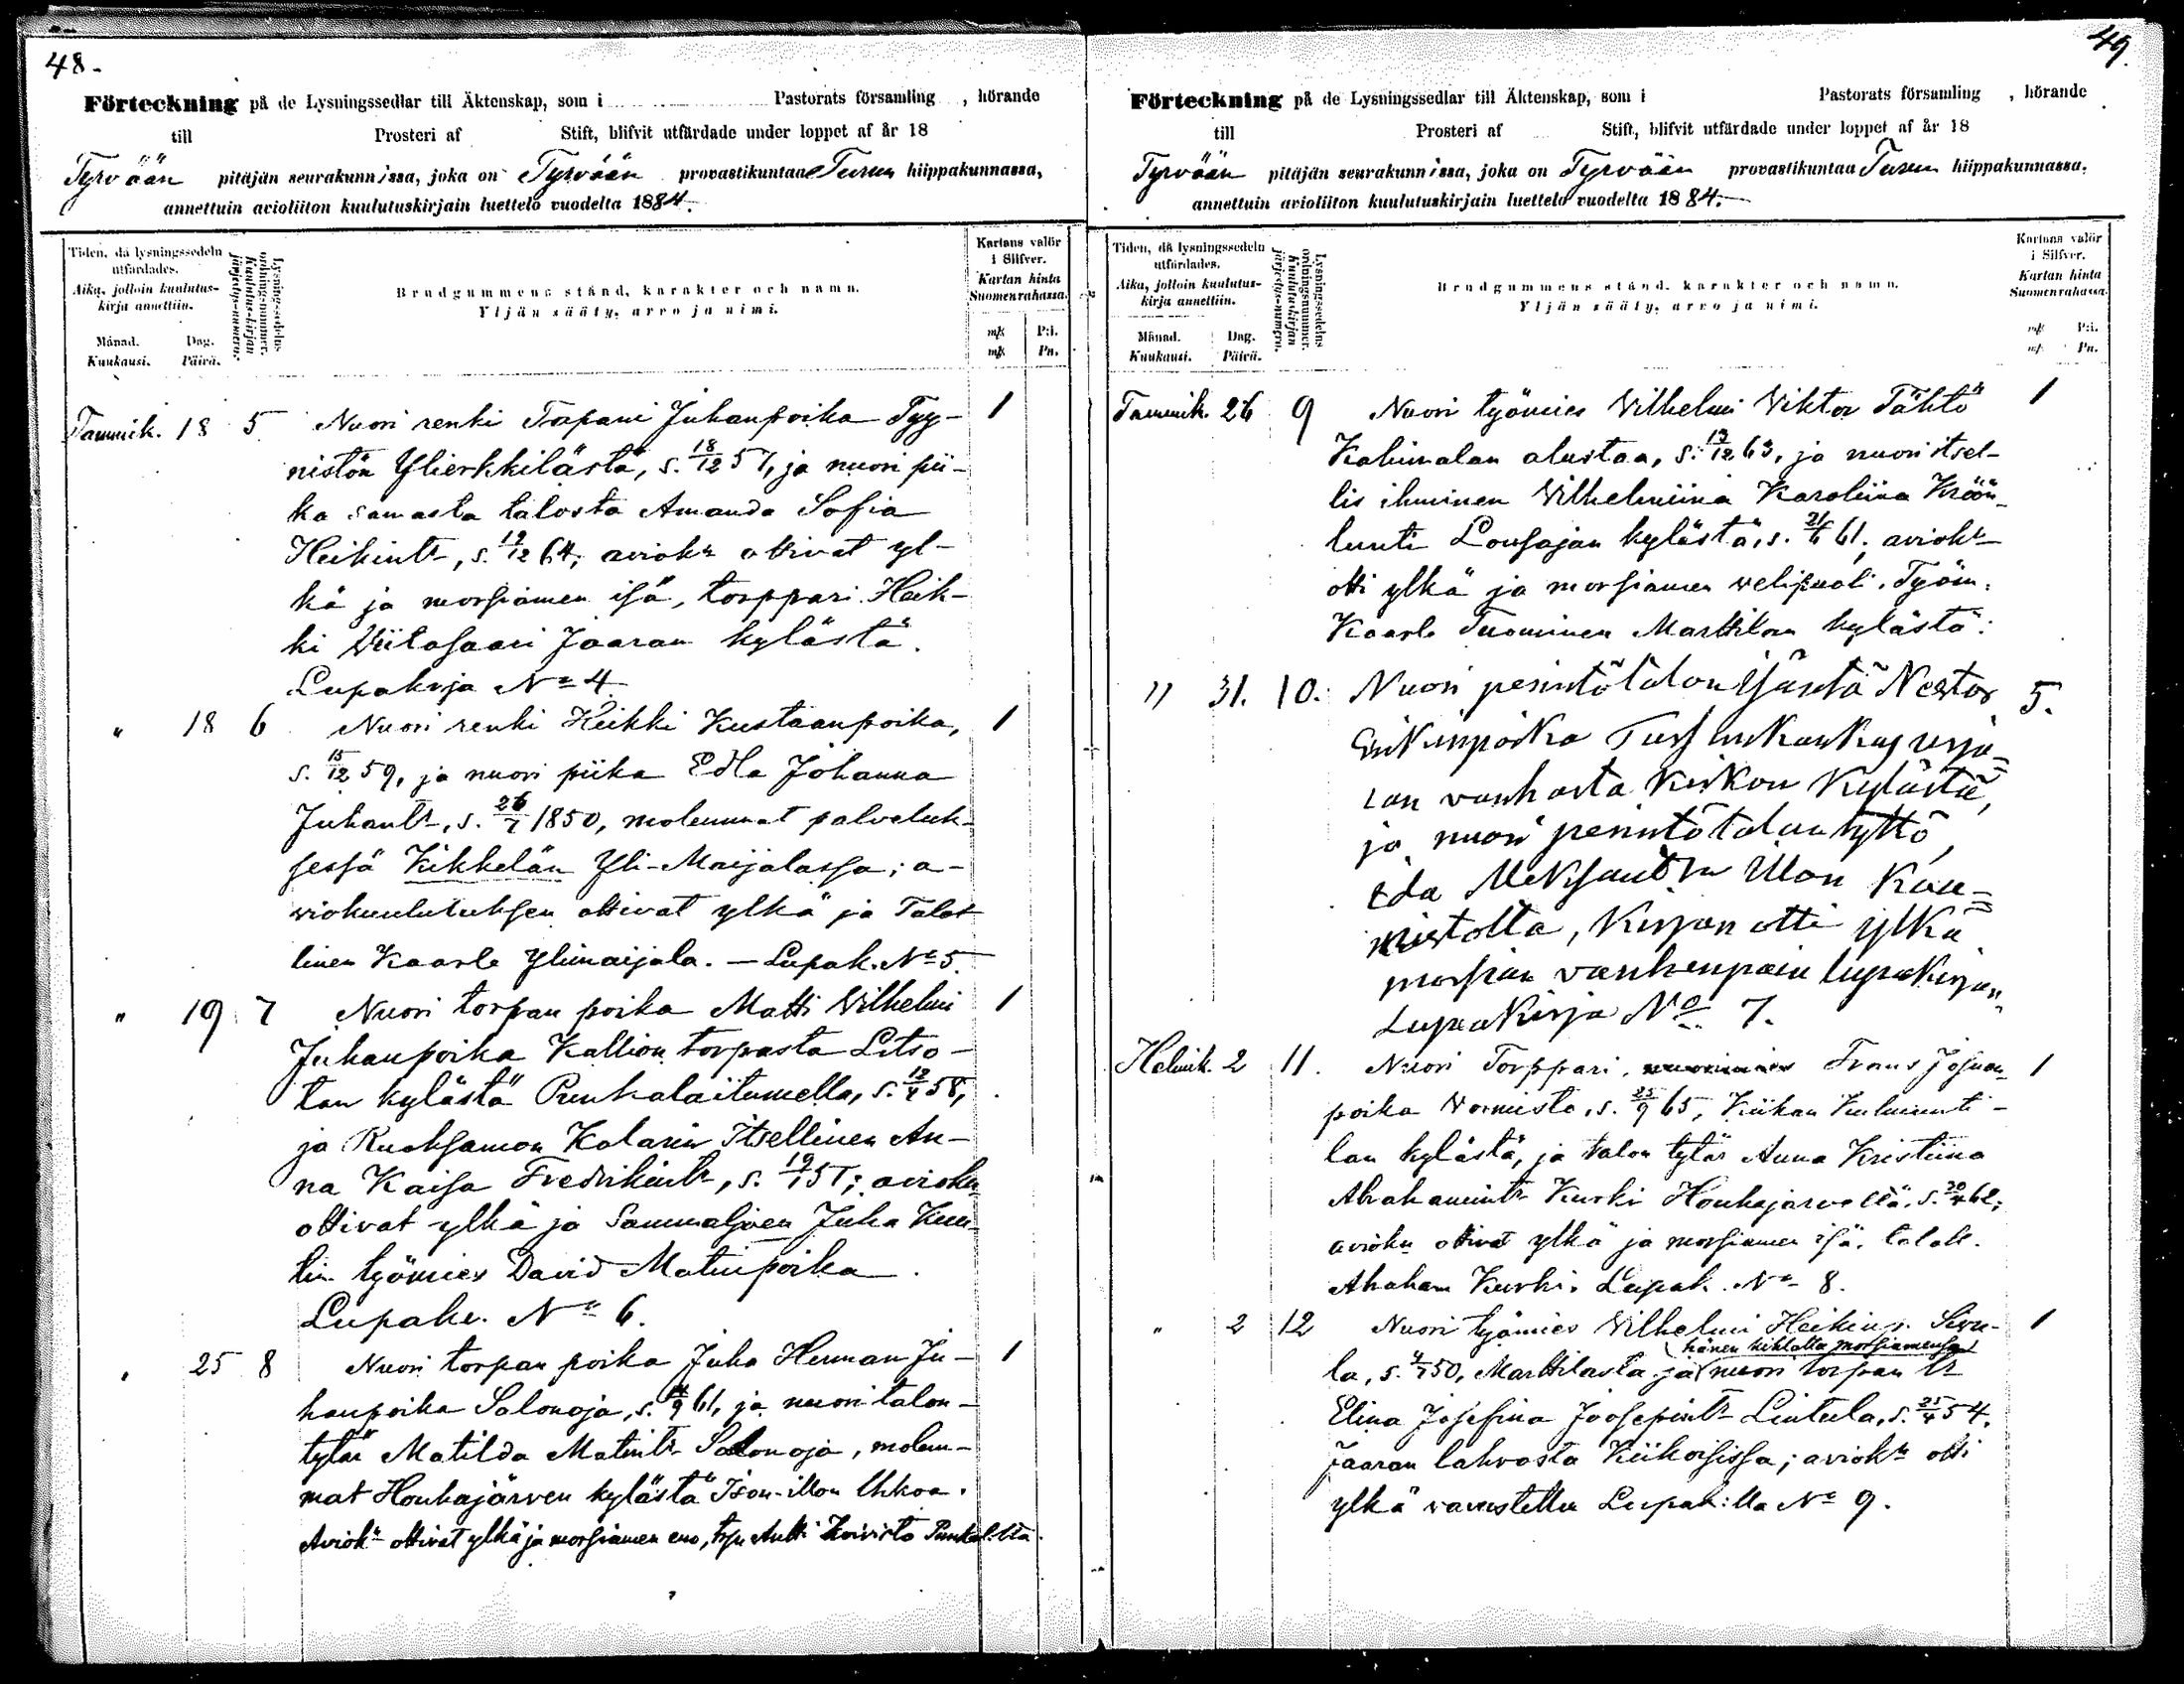 48.
Förteckning på de Lysningssedlar till Äktenskap, som i Pastorats församling , hörande
till Prosteri af Stift, blifvit utfärdade under loppet af år 18
Tyrvään pitäjän seurakunnissa, joka on Tyrvään provastikuntaa Turun hiippakunnassa,
annettuin avioliiton kuulutuskirjain luettelo vuodelta 1884.
Tiden, då lysningssedeln utfärdades.
Aika, jolloin kuulutuskirja annettiin.
Månad. Dag.
Kuukausi. Päivä.
Lysningssedelns ordningsnummer.
Kuulutuskirjan järjestys-numero.
Brudgummens stånd, karakter och namn.
Yljän sääty, arvo ja nimi.
Kartans valör i Silfver.
Kartan hinta Suomenrahassa.
mk P:i.
mk Pn.
Tammik. 18 5 Nuori renki Tapani Juhanpoika Tyy- 1
nistön Ylierkkilästä, s. 18/12 57, ja nuori pii-
ka samasta talosta Amanda Sofia
Heikintr, s. 19/12 64; aviokn ottivat yl-
kä ja morsiamen isä, torppari Heik-
ki Wiitasaari Jaaran kylästä.
Lupakirja No 4
" 18 6 Nuori renki Heikki Kustaanpoika, 1
s. 15/12 59, ja nuori piika Edla Johanna
Juhantr, s. 26/7 1850, molemmat palveluk-
sessa Kikkelän Yli-Maijalassa; a-
viokuulutuksen ottivat ylkä ja Talol
linen Kaarle Ylimaijala. — Lupak. No 5.
" 19 7 Nuori torpan poika Matti Wilhelmi 1
Juhanpoika Kallion torpasta Litso-
lan kylästä Punkalaitumella, s. 12/4 58,
ja Ruoksamon Kolarin Itsellinen An-
na Kaisa Fredrikintr, s. 19/1 57; aviokn
ottivat ylkä ja Sammaljoen Juha Kuu-
tin työmies David Matinpoika.
Lupake. No 6.
" 25 8 Nuori torpan poika Juha Herman Ju- 1
hanpoika Salonoja, s. 9 61, ja nuori talon-
tytär Matilda Matintr Salonoja, molem-
mat Houhajärven kylästä Ison-illon Uhkoa.
Aviokn ottivat ylkä ja morsiamen eno, trp. Antti Koivisto Punkal:lta.
49.
Förteckning på de Lysningssedlar till Äktenskap, som i Pastorats församling , hörande
till Prosteri af Stift, blifvit utfärdade under loppet af år 18
Tyrvään pitäjän seurakunnissa, joka on Tyrvään provastikuntaa Turun hiippakunnassa.
annettuin avioliiton kuulutuskirjain luettelo vuodelta 1884.
Tiden, då lysningssedeln utfärdades.
Aika, jolloin kuulutuskirja annettiin.
Månad. Dag.
Kuukausi. Päivä.
Lysningssedelns ordningsnummer.
Kuulutuskirjan järjestys-numero.
Brudgummens stånd, karakter och namn.
Yljän sääty, arvo ja nimi.
Kartans valör i Silfver.
Kartan hinta Suomenrahassa.
mk P:i.
mk Pn.
Tammik. 26 9 Nuori työmies Wilhelmi Viktor Tähtö 1
Kaliinalan alustaa, s. 13/12 63, ja nuori itsel-
lis ihminen Wilhelmiina Karoliina Kröön-
lunti Lousajan kylästä, s. 21/6 61; aviokn
otti ylkä ja morsiamen velipuoli. Työm.
Kaarle Tuominen Marttilan kylästä:
" 31. 10. Nuori perintötalon isäntä Nestor 5.
Erikinpoika
lan vanhasta Kiskon Kylästä,
ja nuori perintötalon tyttö
Eda Aleksandra Illon Kau-
nistolta, Kirjan otti ylkä
morsian vanhenpain lupakirjan
Lupakirja No 7.
Helmik. 2 11. Nuori Torppari Frans Josuan- 1
poika Vormisto, s. 25/9 65, Kiikan Kulmunti-
lan kylästä, ja talon tytär Anna Kristiina
Abrahamintr Kurki Houhajärveltä, s. 30/4 62;
aviokn ottivat ylkä ja morsiamen isä, taloll.
Abraham Kurki. Lupak. No 8.
" 2 12 Nuori työmies Wilhelmi Heikinp. Sivu- 1
hänen kihlattu morsiamensa
la, s. 4/7 50, Marttilasta ja nuori torpan tr
Elina Josefina Joosepintr Lintula, s. 25/4 54.
Jaaran lahvosta Kiikoisissa; aviokn otti
ylkä varustettu Lupak:lla No 9.